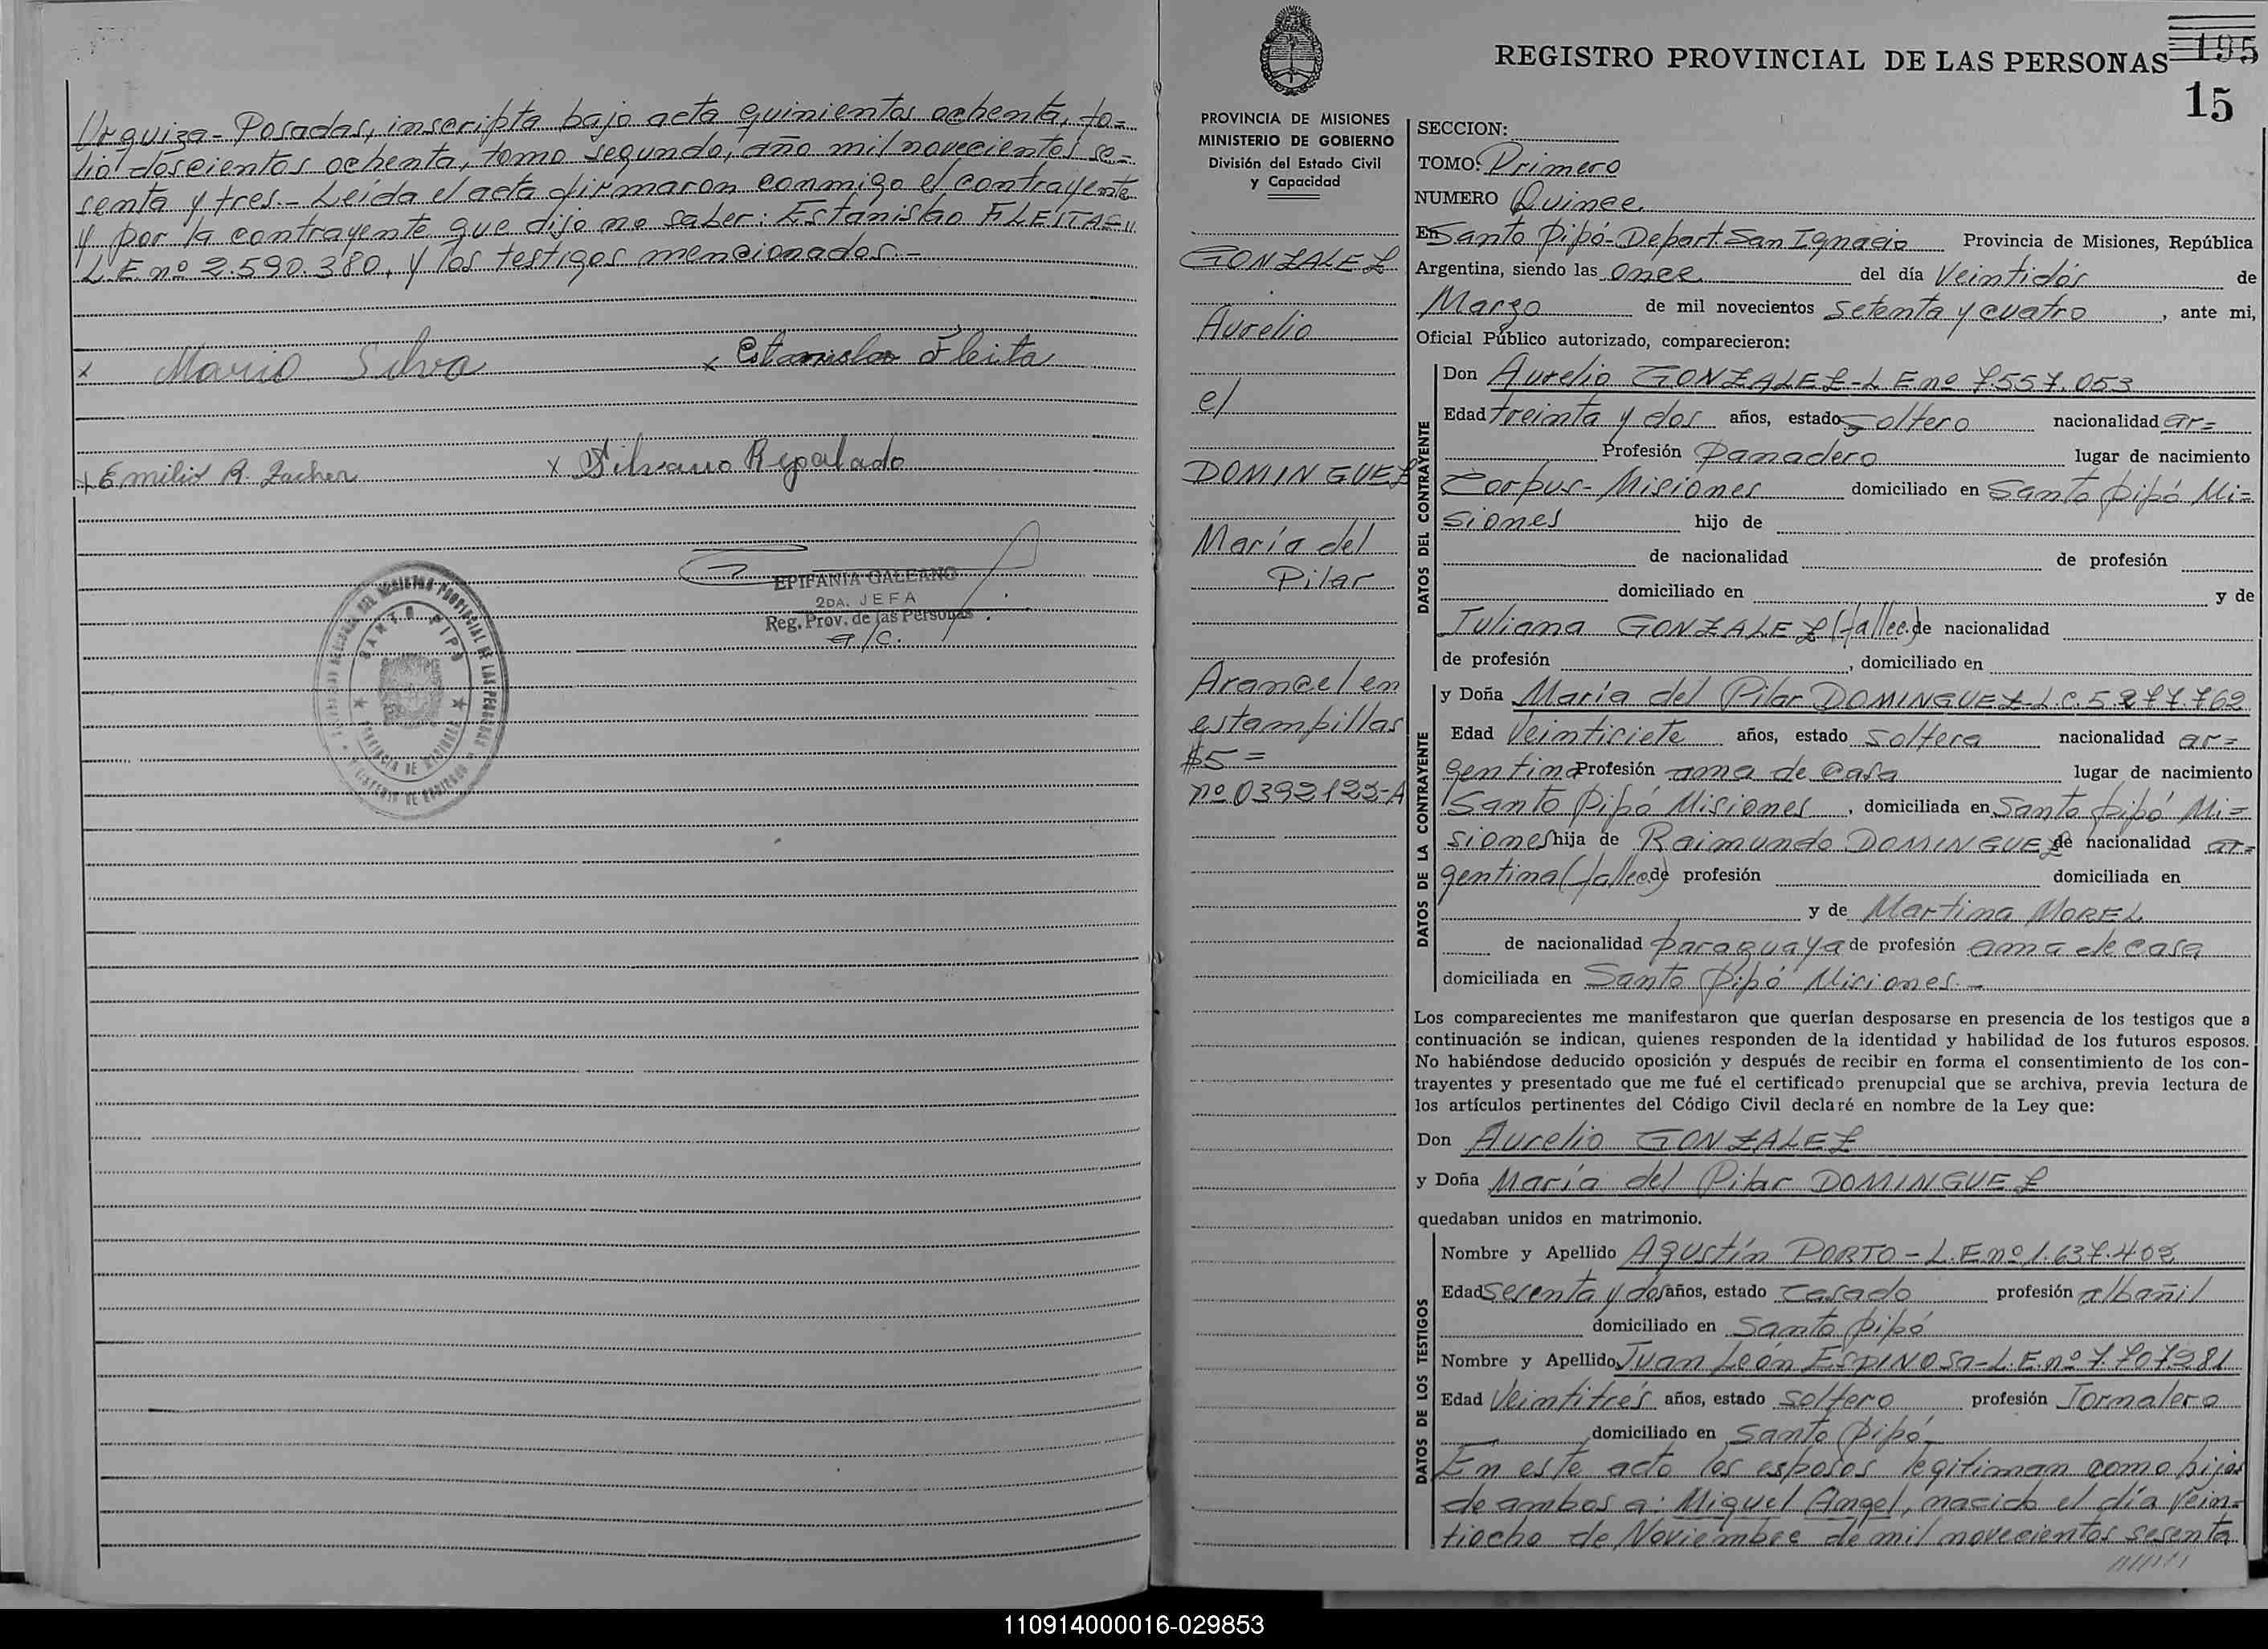 Urquiza - Posadas, inscripta bajo acta quinientos ochenta, fo=
lio doscientos ochenta, tomo segundo, año mil novecientos se=
senta y tres.- Leída el acta firmaron conmigo el contrayente
y por la contrayente que dijo no saber: Estanislao FLEITAS
L.E. nº 2.590.380, y los testigos mencionados.-
x Mario Silva x Estanislao Fleita
+ Emilio R. Zacher x Silvano Regalado
EPIFANIA GALEANO
2DA. JEFA
Reg. Prov. de las Personas
a/c.
SANTO PIPO
PROVINCIA DE MISIONES
195
REGISTRO PROVINCIAL DE LAS PERSONAS
15
PROVINCIA DE MISIONES
MINISTERIO DE GOBIERNO
División del Estado Civil
y Capacidad
GONZALEZ
Aurelio
el
DOMINGUEZ
María del
Pilar
Arancel en
estampillas
$5=
nº 0392122-A
SECCION:
TOMO: Primero
NUMERO Quince
En Santo Pipó-Depart. San Ignacio Provincia de Misiones, República
Argentina, siendo las once del día Veintidós de
Marzo de mil novecientos Setenta y cuatro, ante mi,
Oficial Público autorizado, comparecieron:
DATOS DEL CONTRAYENTE
Don Aurelio GONZALEZ-L.E nº 7.557.053
Edad treinta y dos años, estado soltero nacionalidad ar=
Profesión Panadero lugar de nacimiento
Corpus-Misiones domiciliado en Santo Pipó Mi=
siones hijo de
de nacionalidad de profesión
domiciliado en y de
Juliana GONZALEZ (fallec. de nacionalidad
de profesión , domiciliado en
DATOS DE LA CONTRAYENTE
y Doña María del Pilar DOMINGUEZ-L.C. 5.277.762
Edad Veintisiete años, estado soltera nacionalidad ar=
gentina Profesión ama de casa lugar de nacimiento
Santo Pipó Misiones, domiciliada en Santo Pipó Mi=
siones hija de Raimundo DOMINGUEZ de nacionalidad ar=
gentina (fallec. de profesión domiciliada en
y de Martina MOREL
de nacionalidad paraguaya de profesión ama de casa
domiciliada en Santo Pipó Misiones.-
Los comparecientes me manifestaron que querían desposarse en presencia de los testigos que a
continuación se indican, quienes responden de la identidad y habilidad de los futuros esposos.
No habiéndose deducido oposición y después de recibir en forma el consentimiento de los con-
trayentes y presentado que me fué el certificado prenupcial que se archiva, previa lectura de
los artículos pertinentes del Código Civil declaré en nombre de la Ley que:
Don Aurelio GONZALEZ
y Doña María del Pilar DOMINGUEZ
quedaban unidos en matrimonio.
DATOS DE LOS TESTIGOS
Nombre y Apellido Agustín PORTO-L.E. nº 1.637.402
Edad sesenta y dos años, estado casado profesión albañil
domiciliado en Santo Pipó
Nombre y Apellido Juan León ESPINOSA-L.E. nº 7.707.281
Edad Veintitrés años, estado soltero profesión Jornalero
domiciliado en Santo Pipó
En este acto los esposos legitiman como hijos
de ambos a: Miguel Angel, nacido el día Vein=
tiocho de Noviembre de mil novecientos sesenta
110914000016-029853